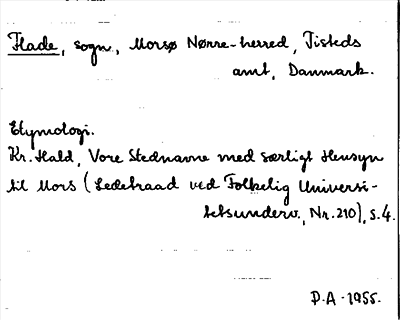 Flade, sogn, Morsø Nørre-herred, Tisteds
amt, Danmark.
Etymologi.
Kr. Hald, Vore Stednavne med særligt Hensyn
til Mors (Ledetraad ved Folkelig Universi-
tetsunderv., Nr. 210), s. 4.
P.A - 1955.